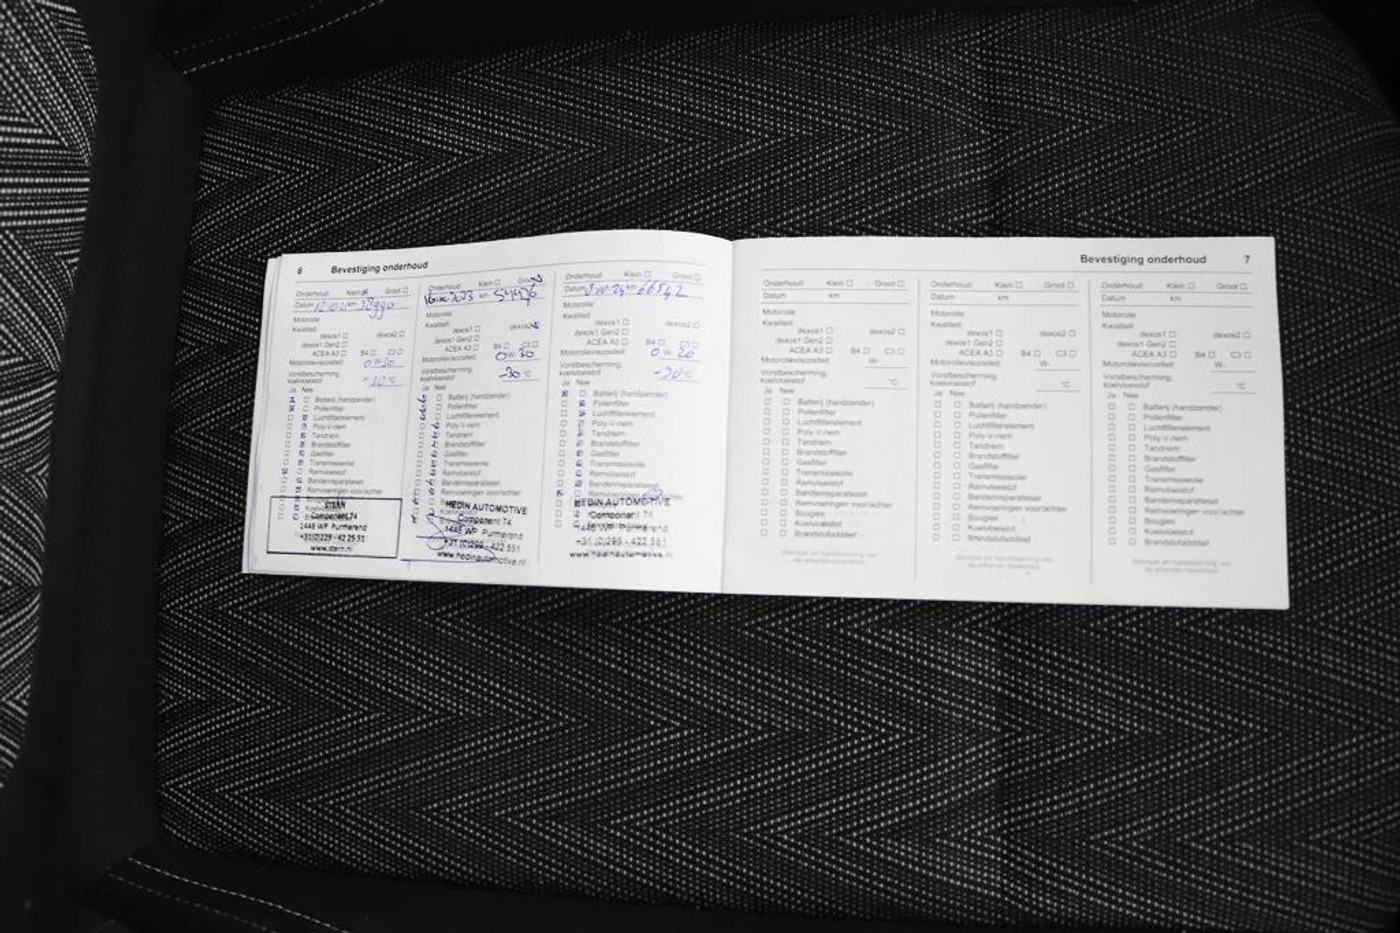 6 Bevestiging onderhoud
Onderhoud: Klein Groot
Datum km 38990
Motorolie
Kwaliteit:
dexos1 dexos2
dexos1 Gen2
ACEA A3 B4 C3
Motorolieviscositeit: 0 W-
Vorstbescherming,
koelvloeistof °C
Ja Nee
Batterij (handzender)
Pollenfilter
Luchtfilterelement
Poly-V-riem
Tandriem
Brandstoffilter
Gasfilter
Transmissieolie
Remvloeistof
Bandenreparatieset
Remvoeringen voor/achter
STERN
Component 74
1446 WP Purmerend
www.stern.nl
Onderhoud: Klein Groot
2023 km
Motorolie
Kwaliteit:
dexos1 dexos2
dexos1 Gen2
ACEA A3 B4 C3
Motorolieviscositeit: 0 W- 30
Vorstbescherming,
koelvloeistof -30 °C
Ja Nee
Batterij (handzender)
Pollenfilter
Luchtfilterelement
Poly-V-riem
Tandriem
Brandstoffilter
Gasfilter
Transmissieolie
Remvloeistof
Bandenreparatieset
Remvoeringen voor/achter
HEDIN AUTOMOTIVE
Component 74
1446 WP Purmerend
+31 (0)299 - 422 551
www.hedinautomotive.nl
Onderhoud: Klein Groot
Datum km 66542
Motorolie
Kwaliteit:
dexos1 dexos2
dexos1 Gen2
ACEA A3 B4 C3
Motorolieviscositeit: 0 W 20
Vorstbescherming,
koelvloeistof °C
Ja Nee
Batterij (handzender)
Pollenfilter
Luchtfilterelement
Poly-V-riem
Tandriem
Brandstoffilter
Gasfilter
Transmissieolie
Remvloeistof
Bandenreparatieset
HEDIN AUTOMOTIVE
Component 74
1446 WP Purmerend
+31 (0)299 - 422 551
www.hedinautomotive.nl
Bevestiging onderhoud 7
Onderhoud: Klein Groot
Datum km
Motorolie
Kwaliteit:
dexos1 dexos2
dexos1 Gen2
ACEA A3 B4 C3
Motorolieviscositeit: W-
Vorstbescherming,
koelvloeistof °C
Ja Nee
Batterij (handzender)
Pollenfilter
Luchtfilterelement
Poly-V-riem
Tandriem
Brandstoffilter
Gasfilter
Transmissieolie
Remvloeistof
Bandenreparatieset
Remvoeringen voor/achter
Bougies
Koelvloeistof
Brandstofadditief
Stempel en handtekening van
de erkende reparateur
Onderhoud: Klein Groot
Datum km
Motorolie
Kwaliteit:
dexos1 dexos2
dexos1 Gen2
ACEA A3 B4 C3
Motorolieviscositeit: W-
Vorstbescherming,
koelvloeistof °C
Ja Nee
Batterij (handzender)
Pollenfilter
Luchtfilterelement
Poly-V-riem
Tandriem
Brandstoffilter
Gasfilter
Transmissieolie
Remvloeistof
Bandenreparatieset
Remvoeringen voor/achter
Bougies
Koelvloeistof
Brandstofadditief
Stempel en handtekening van
de erkende reparateur
Onderhoud: Klein Groot
Datum km
Motorolie
Kwaliteit:
dexos1 dexos2
dexos1 Gen2
ACEA A3 B4 C3
Motorolieviscositeit: W-
Vorstbescherming,
koelvloeistof °C
Ja Nee
Batterij (handzender)
Pollenfilter
Luchtfilterelement
Poly-V-riem
Tandriem
Brandstoffilter
Gasfilter
Transmissieolie
Remvloeistof
Bandenreparatieset
Remvoeringen voor/achter
Bougies
Koelvloeistof
Brandstofadditief
Stempel en handtekening van
de erkende reparateur